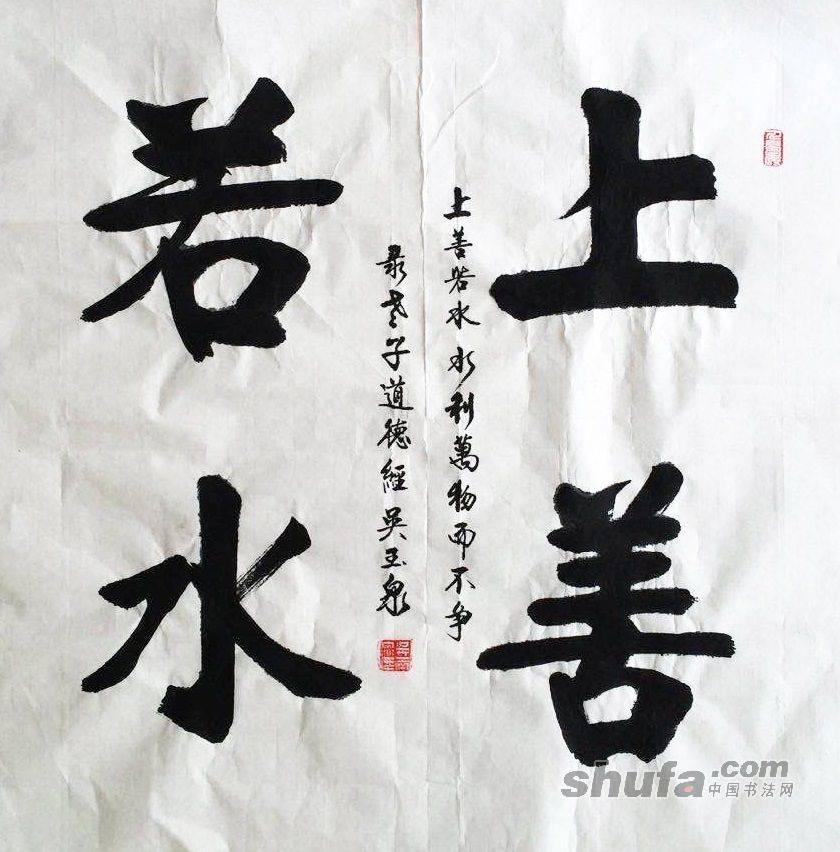 上善
若水
上善若水水利萬物而不争
录老子道德經吴玉泉
shufa.com
中国书法网